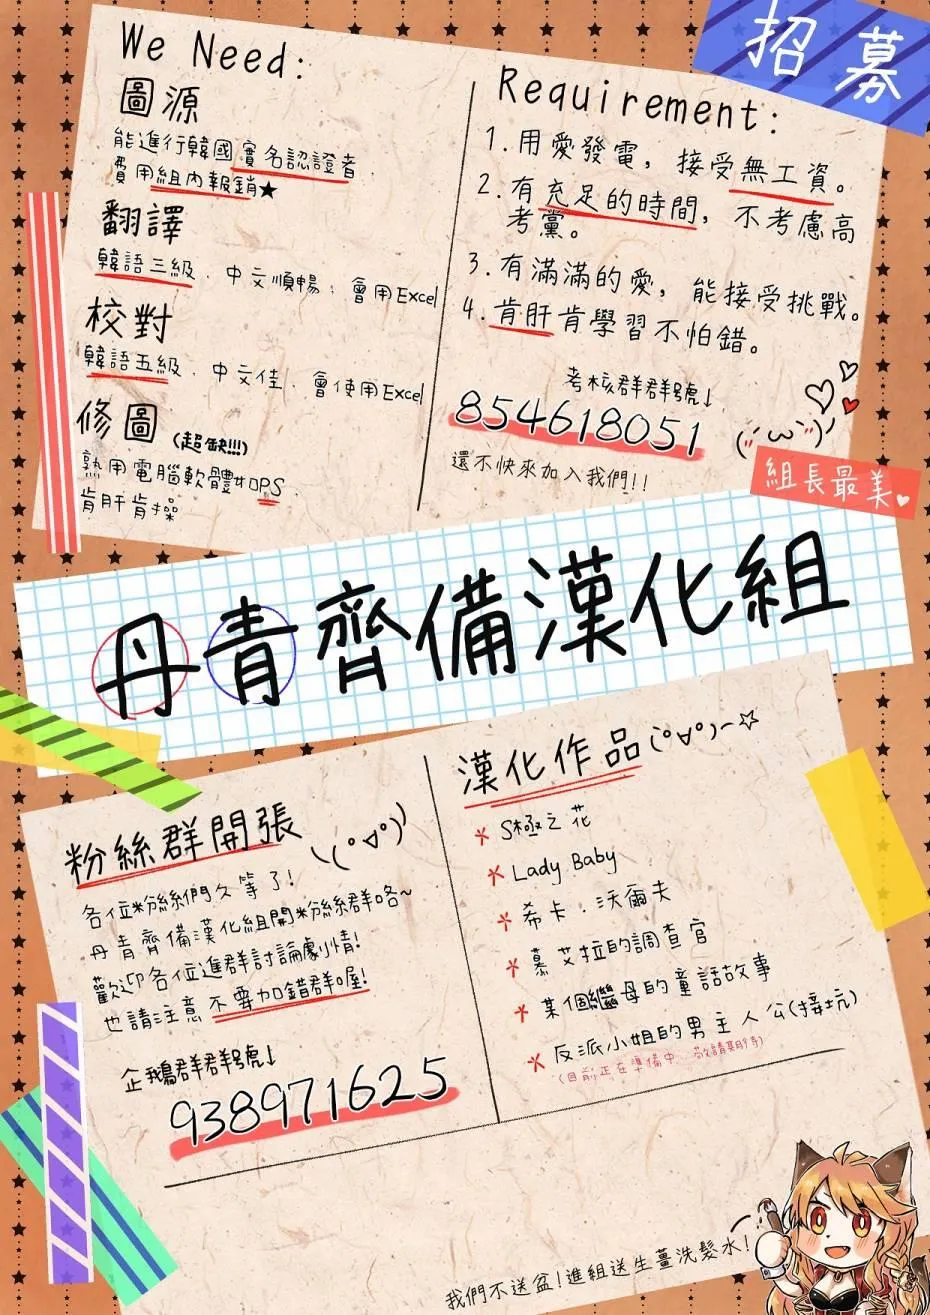 招募
We Need:
圖源
能進行韓國實名認證者.
費用組內報銷★
翻譯
韓語三級、中文順暢、會用Excel
校對
韓語五級、中文佳、會使用Excel
修圖(超缺!!!)
熟用電腦軟體如PS、
肯肝肯操
Requirement:
1.用愛發電，接受無工資。
2.有充足的時間，不考慮高
考黨。
3.有滿滿的愛，能接受挑戰。
4.肯肝肯學習不怕錯。
考核群群號↓
854618051
還不快來加入我們!!
(´･ω･`)
組長最美♥
丹青齊備漢化組
粉絲群開張
\(°▽°)
各位粉絲們久等了!
丹青齊備漢化組開粉絲群咯~
歡迎各位進群討論劇情!
也請注意不要加錯群喔!
企鵝群群號↓
938971625
漢化作品(°∀°)~☆
*S極之花
*Lady Baby
*希卡·沃爾夫
*慕艾拉的調查官
*某個繼母的童話故事
*反派小姐的男主人公(接坑)
(目前正在準備中、敬請期待)
我們不送盆!進組送生薑洗髮水!